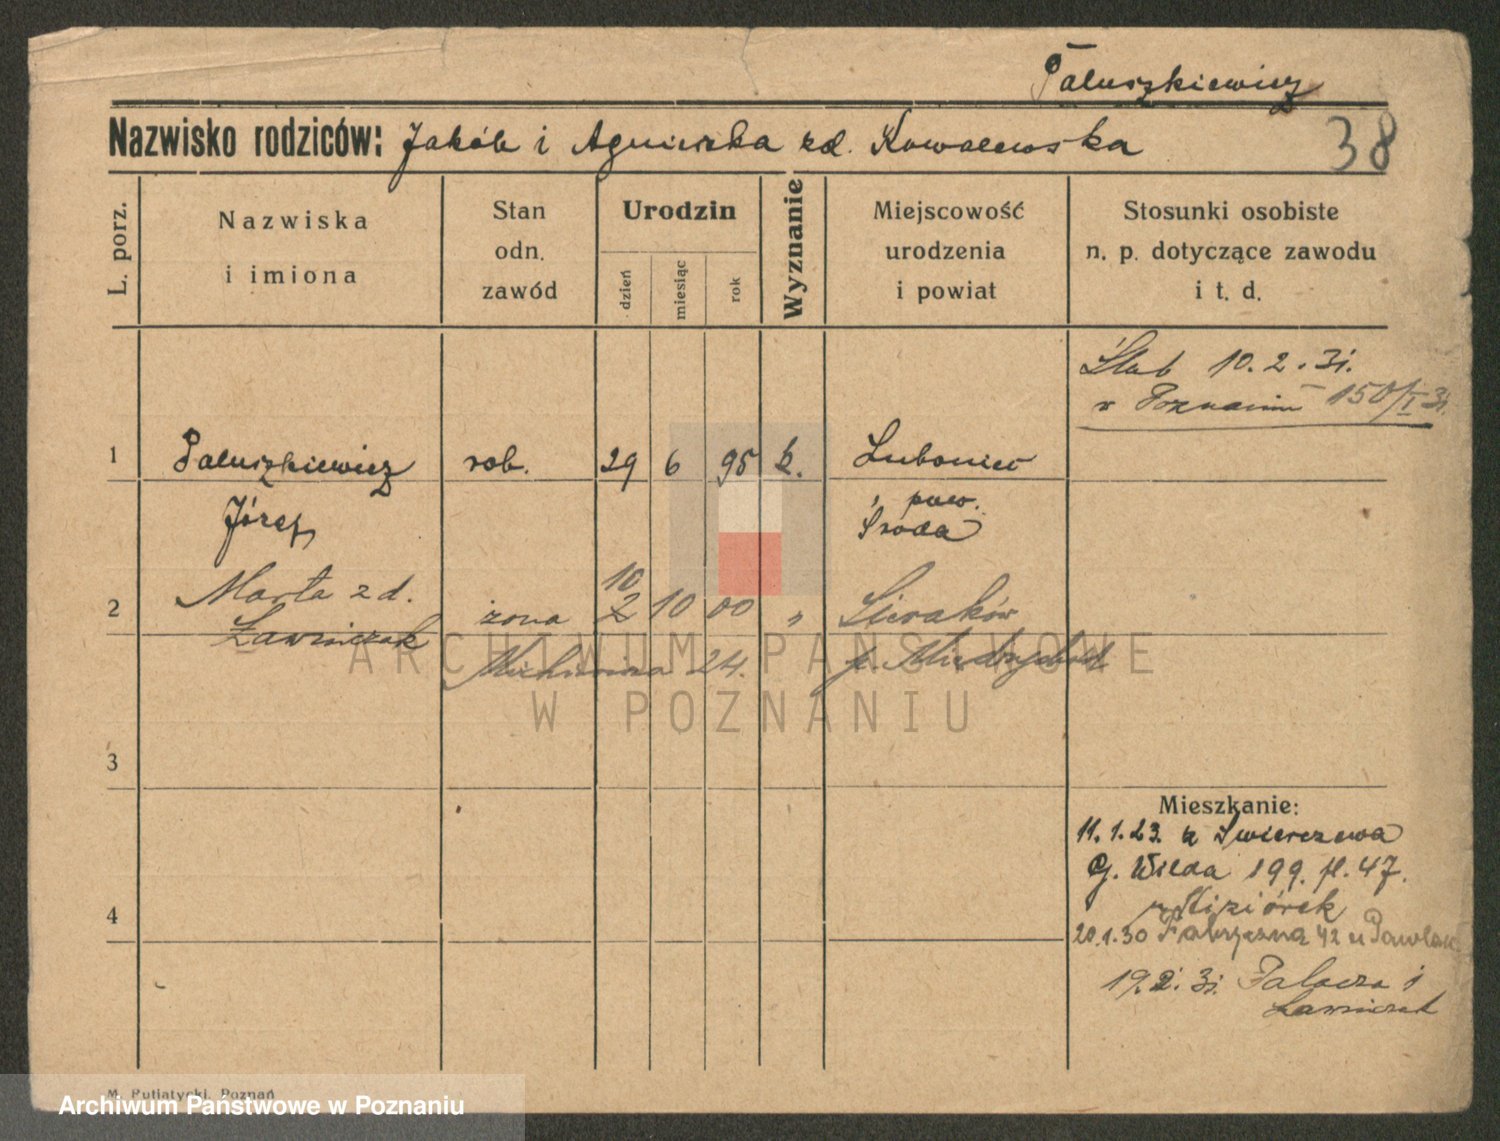 Paluszkiewicz
Nazwisko rodziców: Jakób i Agnieszka zd. Kowalewska 38
L. porz.
Nazwiska
i imiona
Stan
odn.
zawód
Urodzin
dzień
miesiąc
rok
Wyznanie
Miejscowość
urodzenia
i powiat
Stosunki osobiste
n. p. dotyczące zawodu
i t. d.
Ślub 10.2.31.
w Poznaniu 150/I 31.
1 Paluszkiewicz rob. 29 6 95 k.
Józef
pow.
Środa
10
2 Marta zd. żona 2 10 00 " Sieraków
Ławniczak
24. p.
3
Mieszkanie:
11.1.23. z Świerczewa
G. Wilda 199. pl. 47.
4
20.1.30 Fabryczna 42 u Pawlak
19.2.31. Palacza 1
Ławniczak
M. Putiatycki, Poznań
ARCHIWUM PAŃSTWOWE
W POZNANIU
Archiwum Państwowe w Poznaniu